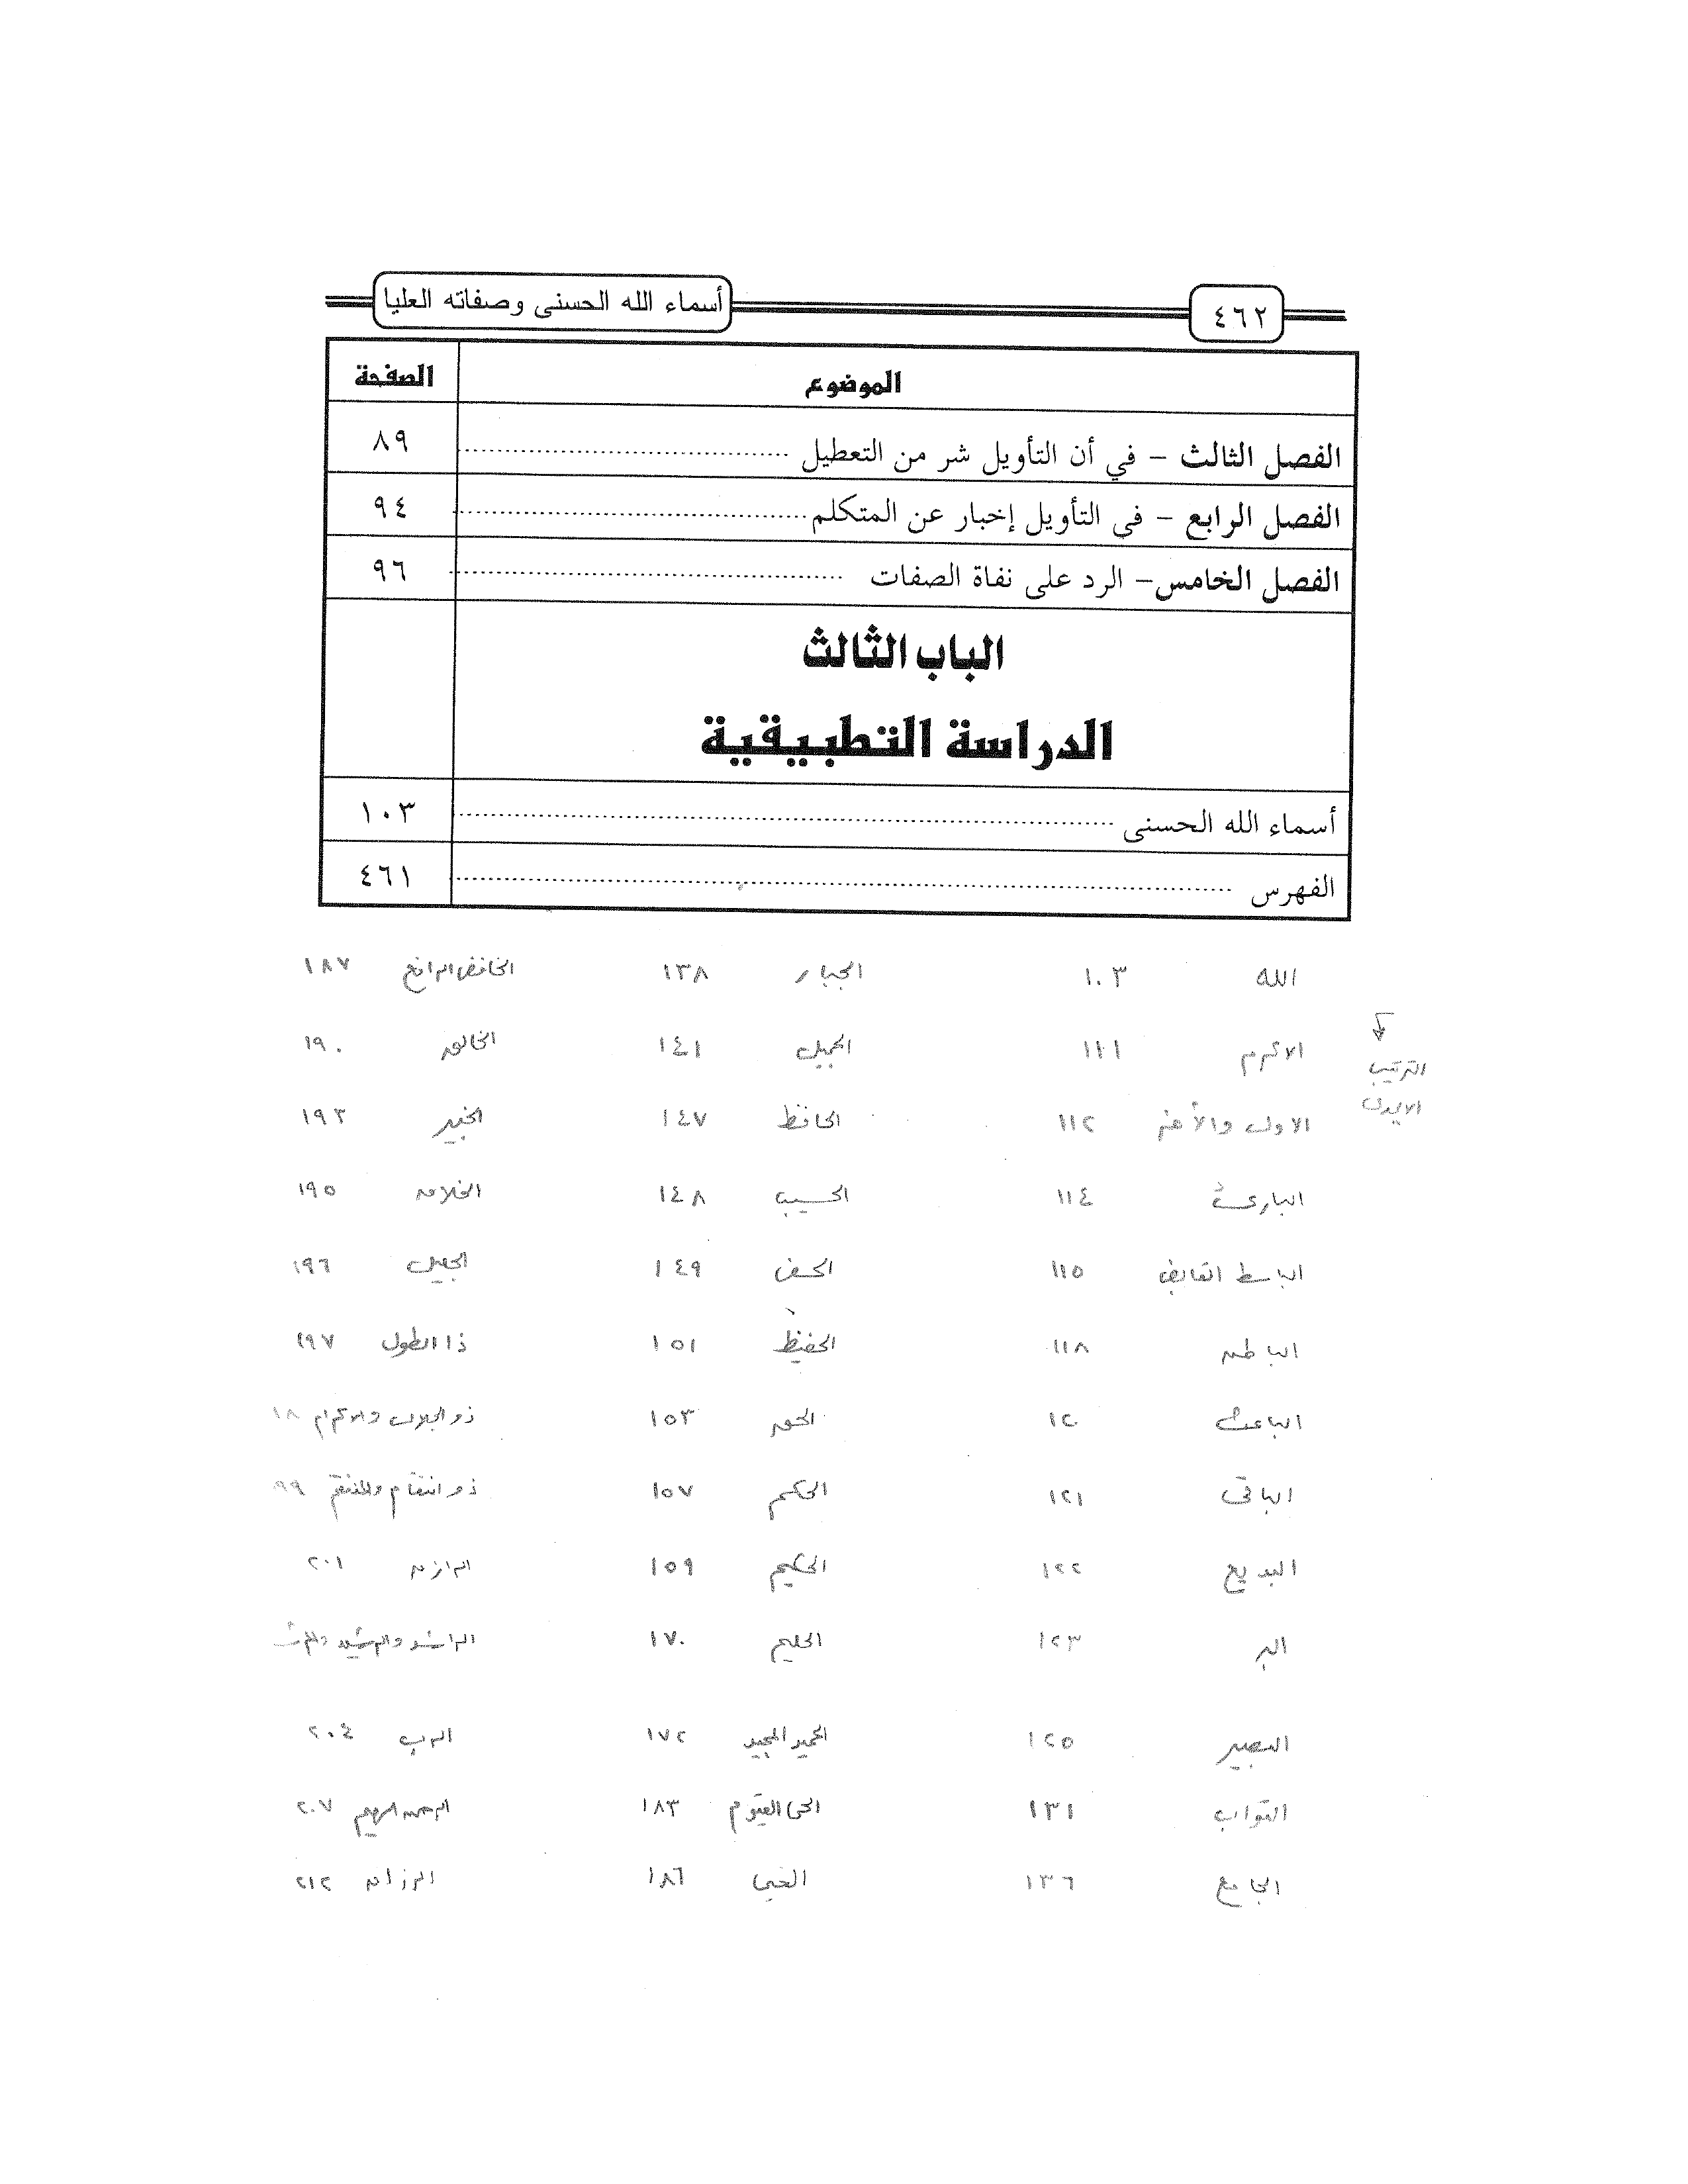 ٤٦٢ أسماء الله الحسنى وصفاته العليا
الموضوع الصفحة
الفصل الثالث – في أن التأويل شر من التعطيل ........ ٨٩
الفصل الرابع – في التأويل إخبار عن المتكلم ........ ٩٤
الفصل الخامس– الرد على نفاة الصفات ........ ٩٦
الباب الثالث
الدراسة التطبيقية
أسماء الله الحسنى ........ ١٠٣
الفهرس ........ ٤٦١
الله ١٠٣ الجبار ١٣٨ الخافض الرافع ١٨٧
الاكرم ١١١ الجميل ١٤١ الخالق ١٩٠
الترتيب
الاول والأخر ١١٢ الحافظ ١٤٧ الخبير ١٩٣
البارئ ١١٤ الحسيب ١٤٨ الخلاق ١٩٥
الباسط القابض ١١٥ ١٤٩ ١٩٦
الباطن ١١٨ الحفيظ ١٥١ ذا الطول ١٩٧
الباعث ١٢٠ الحق ١٥٣ ذو الجلال والاكرام
الباقى ١٢١ الحكم ١٥٧ ذو انتقام والمنتقم
البديع ١٢٢ الحكيم ١٥٩ الرازق ٢٠١
البر ١٢٣ الحليم ١٧٠ الراشد والرشيد
البصير ١٢٥ الحميد المجيد ١٧٢ الرب ٢٠٤
التواب ١٣١ الحى القيوم ١٨٣ الرحمن الرحيم ٢٠٧
الجامع ١٣٦ الحيى ١٨٦ الرزاق ٢١٢